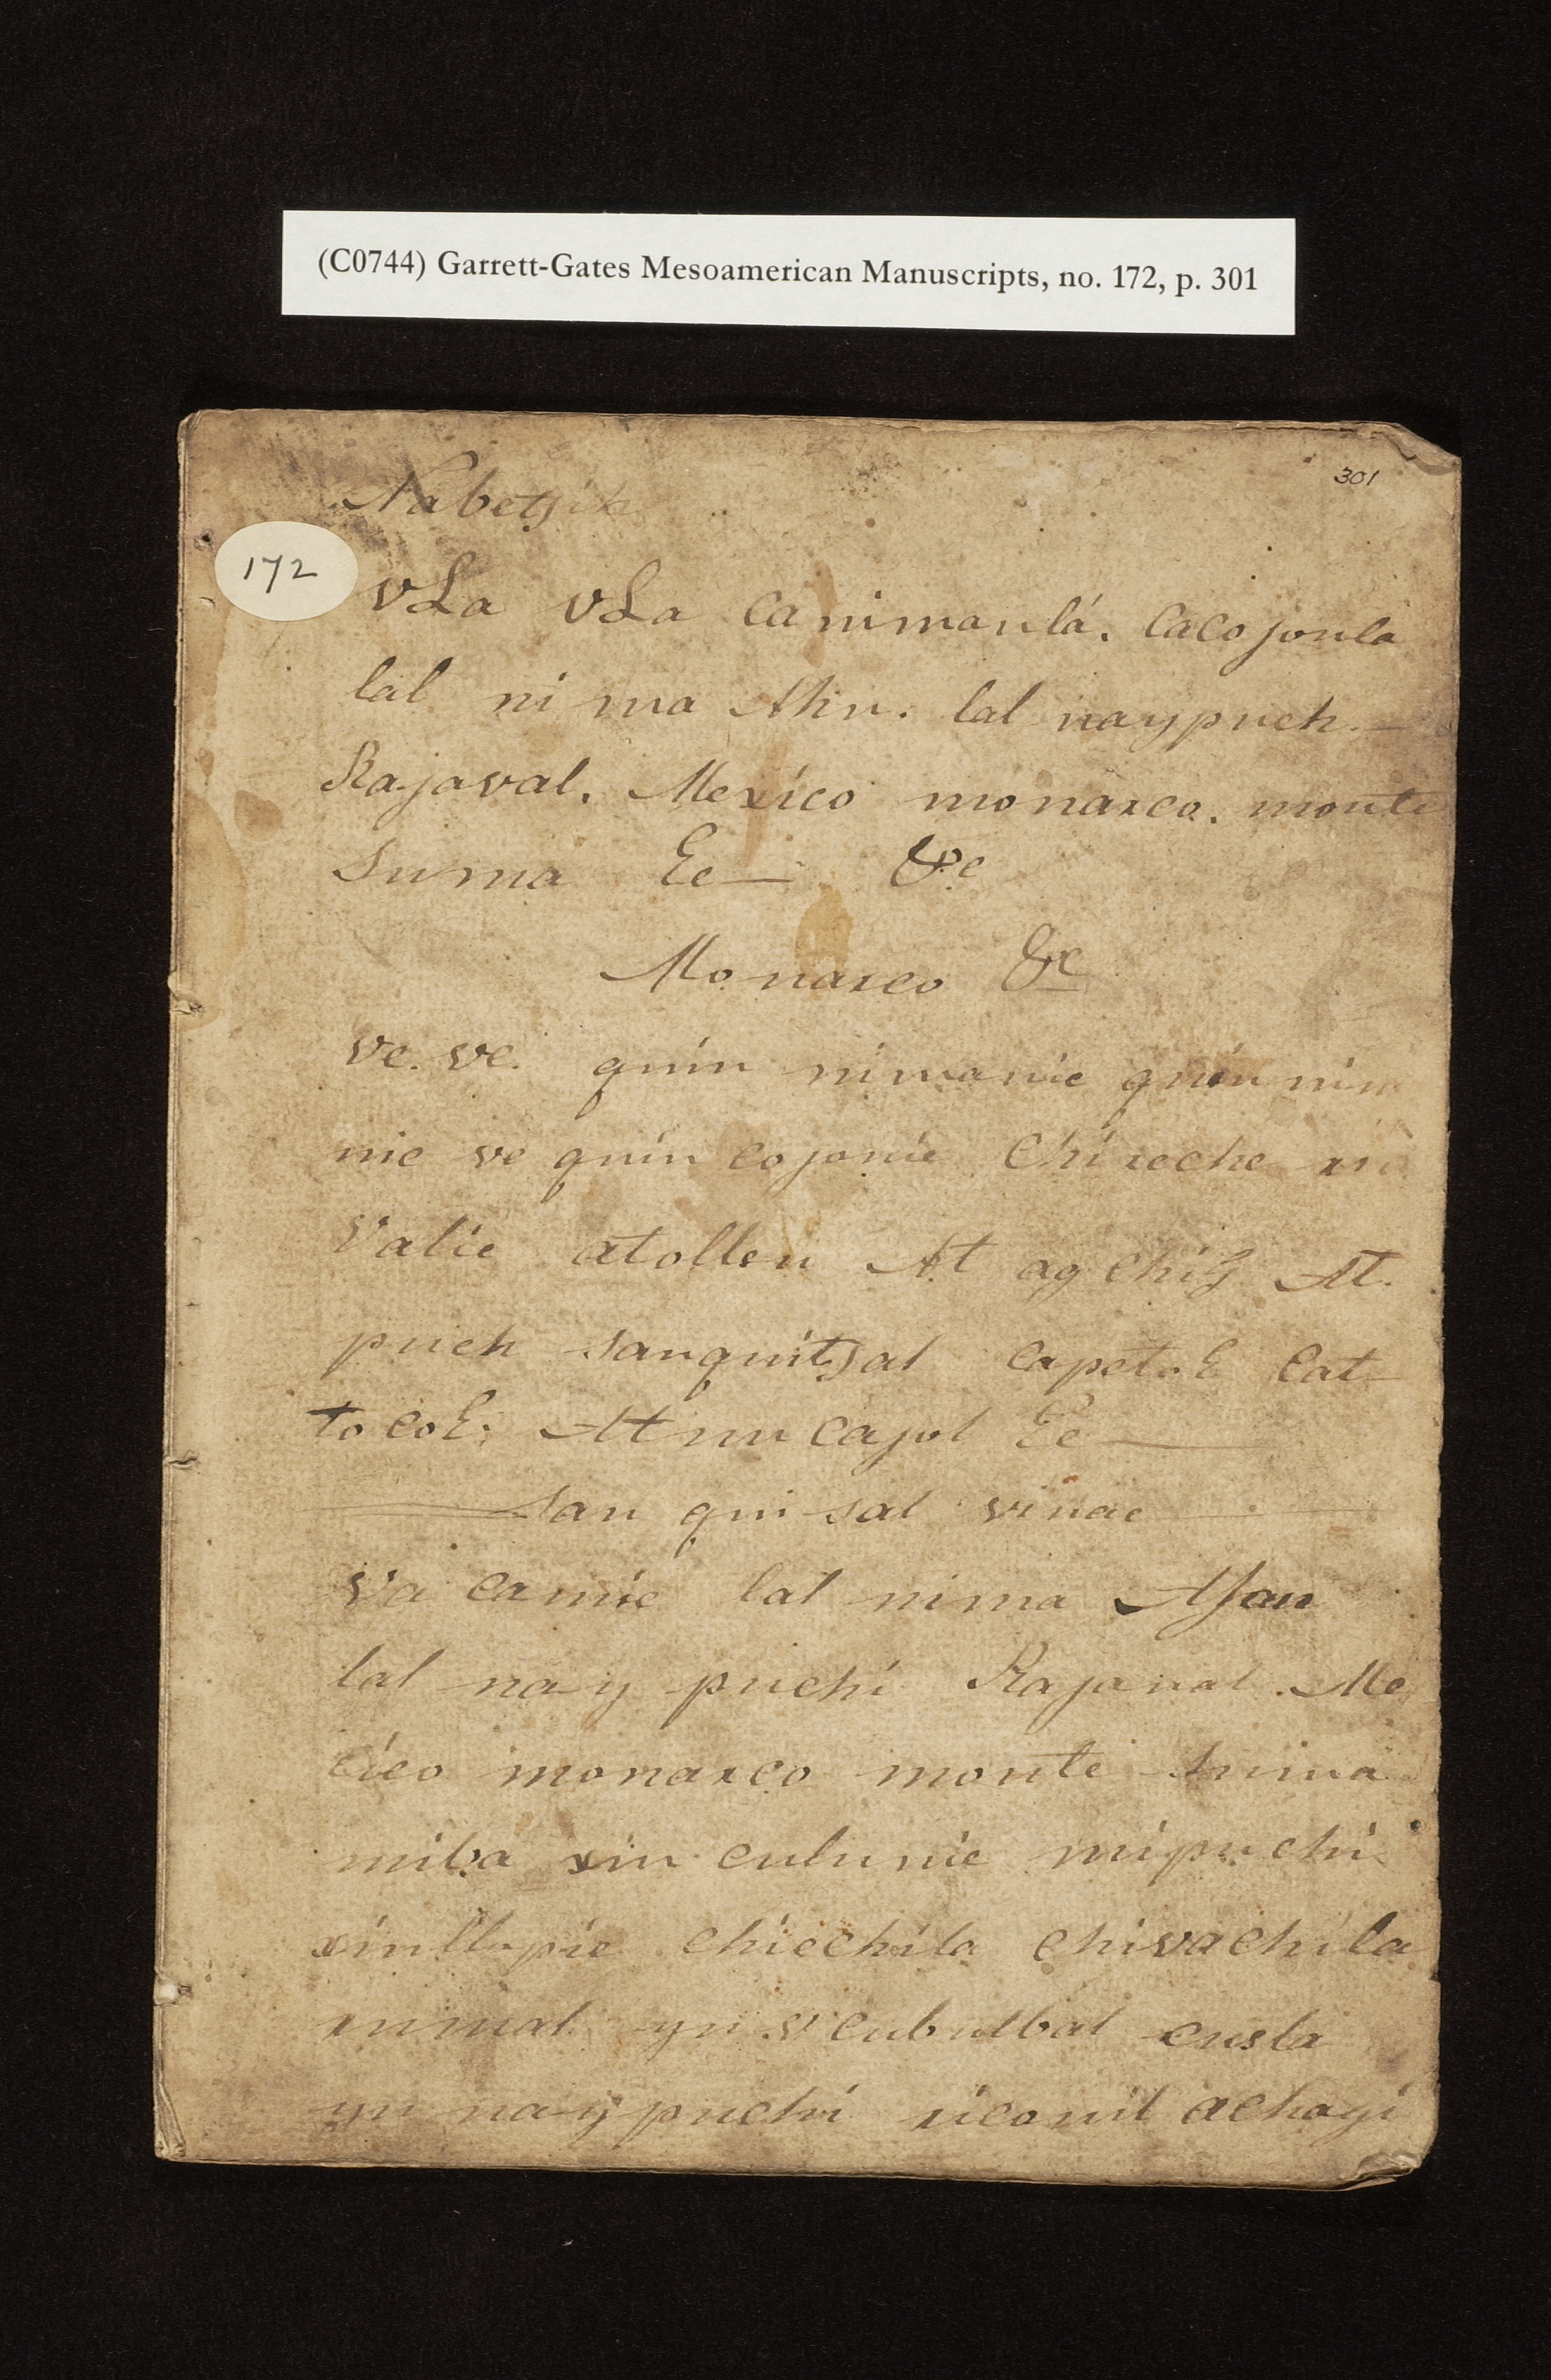 (C0744) Garrett-Gates Mesoamerican Manuscripts, no. 172, p. 301
301
172
vLa vLa canimanlá. Cacojonla
lal ni ma Ahn. lal naypuch.—
Rajaval. Mexico monarco. monte
Suma Ee— &c
Monarco &c
ve. ve. quin nimanic quin nim
nic ve quin cojonic Chi reche
Valic atollen At ag chiG At.
puch sanquitzal capetoE Cat-
to coE; At nu cajol Ee—
San qui sal vinac
Va camic lal nima AJau
lal na y puchi Rajaval. Me
cico monarco monte Suma
miba xin culunic mipuchi
xinllopic chicchila chivachila
rumal yn v cubulbal cusla
yn naypuchi riconil achogi